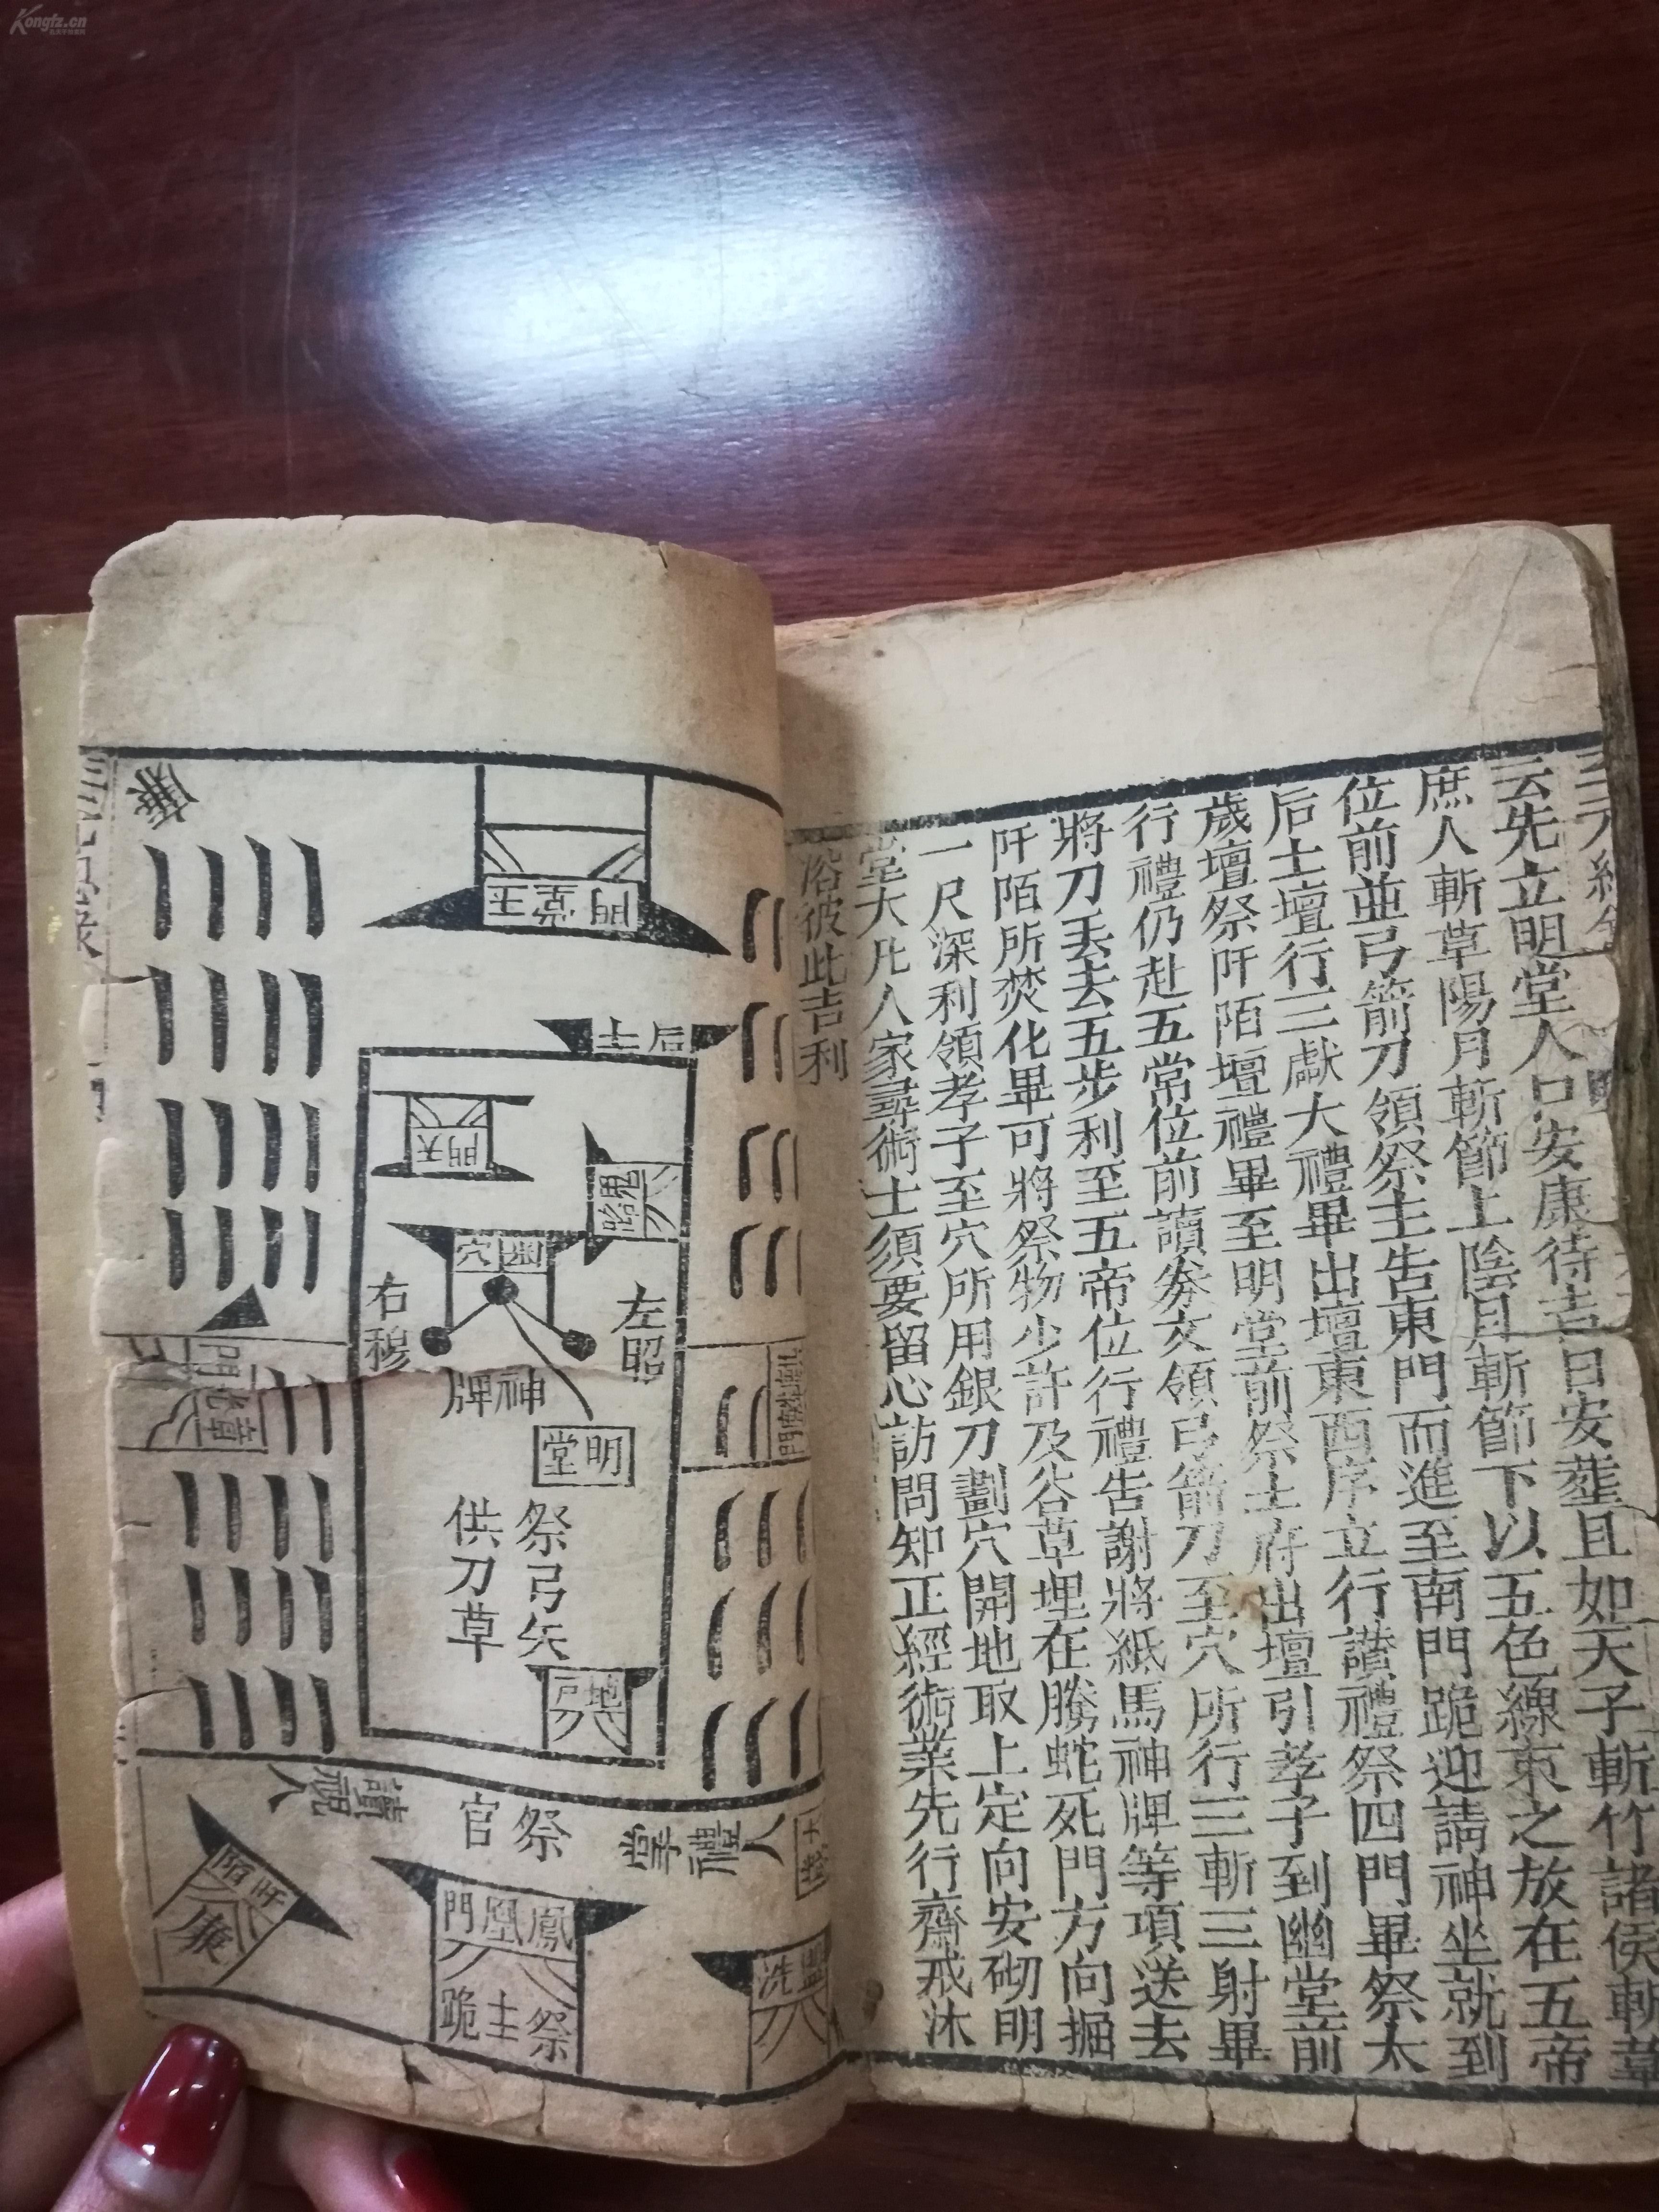 云先立明堂人口安康待吉日安葬且如天子斬竹諸侯斬葦
庶人斬草陽月斬節上陰月斬節下以五色線束之放在五帝
位前並弓箭刀領祭主告東門而進至南門跪迎請神坐就到
后土壇行三獻大禮畢出壇東西序立行讃禮祭四門畢祭太
歲壇祭阡陌壇禮畢至明堂前祭土府出壇引孝子到幽堂前
行禮仍赴五常位前讀券文領弓箭刀至穴所行三斬三射畢
將刀丢去五步利至五帝位行禮告謝將紙馬神牌等項送去
阡陌所焚化畢可將祭物少許及谷草埋在騰蛇死門方向掘
一尺深利領孝子至穴所用銀刀劃穴開地取上定向安砌明
堂大凡人家尋術士須要留心訪問知正經術業先行齋戒沐
浴彼此吉利
玉堂門
后土
天門
鬼路
幽穴
左昭
右穆
神牌
明堂
祭弓矢
供刀草
地戶
讀祝人
祭官
掌禮人
阡陌
鳳凰門
祭主跪
盥洗
Kongfz.cn